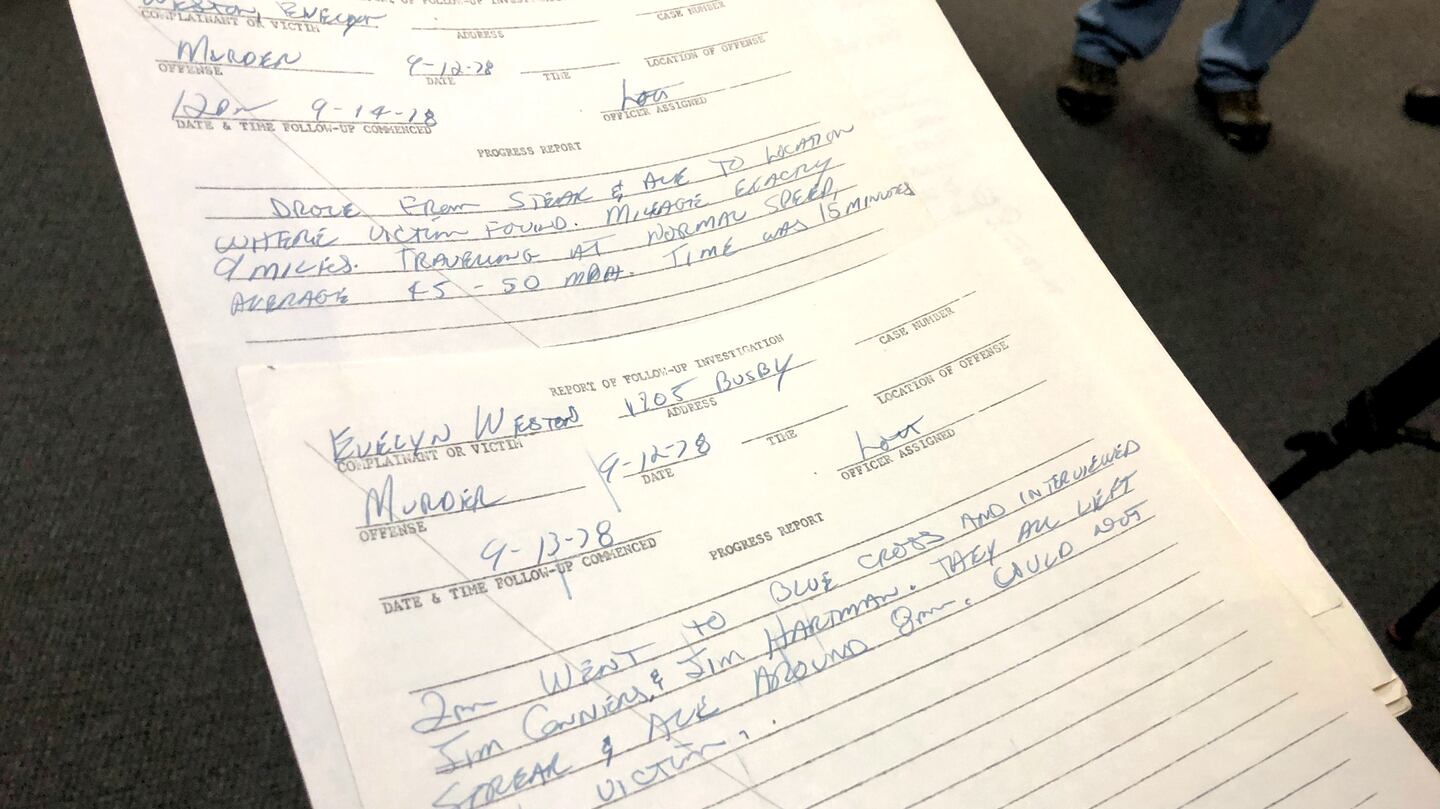 REPORT OF FOLLOW-UP INVESTIGATION
WESTON, EVELYN
COMPLAINANT OR VICTIM ADDRESS CASE NUMBER
MURDER 9-12-78
OFFENSE DATE TIME LOCATION OF OFFENSE
12pm 9-14-78
DATE & TIME FOLLOW-UP COMMENCED OFFICER ASSIGNED
PROGRESS REPORT
DROVE FROM STEAK & ALE TO LOCATION
WHERE VICTIM FOUND. MILEAGE EXACTLY
9 MILES. TRAVELING AT NORMAL SPEED,
AVERAGE 45-50 MPH. TIME WAS 15 MINUTES
REPORT OF FOLLOW-UP INVESTIGATION
EVELYN WESTON 1705 BUSBY
COMPLAINANT OR VICTIM ADDRESS CASE NUMBER
MURDER 9-12-78
OFFENSE DATE TIME LOCATION OF OFFENSE
9-13-78
DATE & TIME FOLLOW-UP COMMENCED OFFICER ASSIGNED
PROGRESS REPORT
2pm WENT TO BLUE CROSS AND INTERVIEWED
JIM CONNERS, & JIM HARTMAN. THEY ALL LEFT
STREAK & ALE AROUND 8pm. COULD NOT
VICTIM.